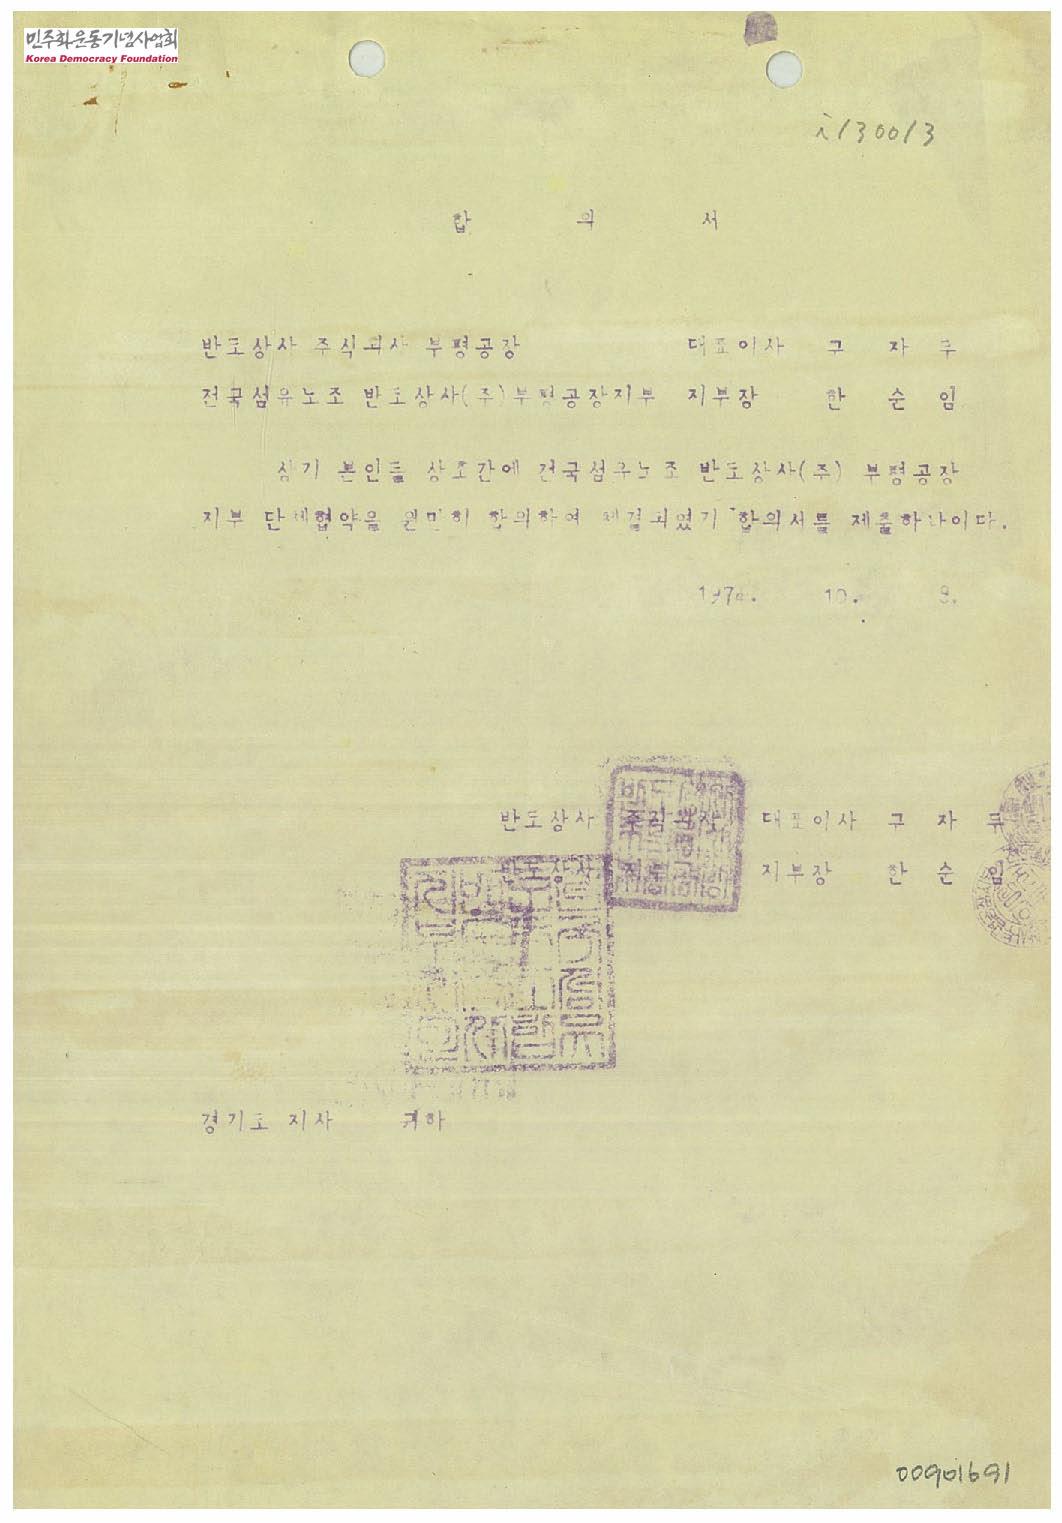 민주화운동기념사업회
Korea Democracy Foundation
i130013
합 의 서
반도상사 주식회사 부평공장 대표이사 구 자 두
전국섬유노조 반도상사(주)부평공장지부 지부장 한 순 임
상기 본인들 상호간에 전국섬유노조 반도상사(주) 부평공장
지부 단체협약을 원만히 합의하여 체결되었기 합의서를 제출하나이다.
197 10.
반도상사 대표이사 구 자 두
반도상사 지부장 한 순 임
경기도 지사 귀하
00901691